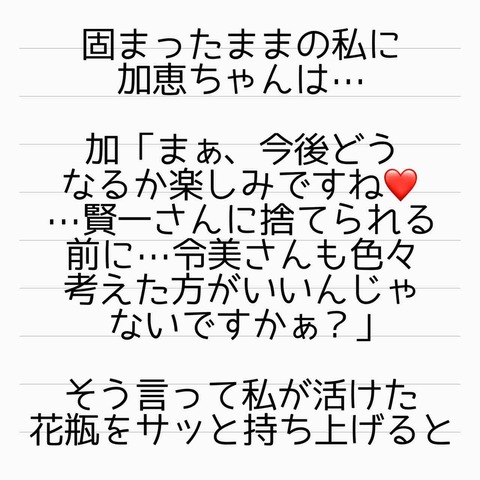 固まったままの私に
加恵ちゃんは…
加「まぁ、今後どう
なるか楽しみですね❤️
…賢一さんに捨てられる
前に…令美さんも色々
考えた方がいいんじゃ
ないですかぁ？」
そう言って私が活けた
花瓶をサッと持ち上げると